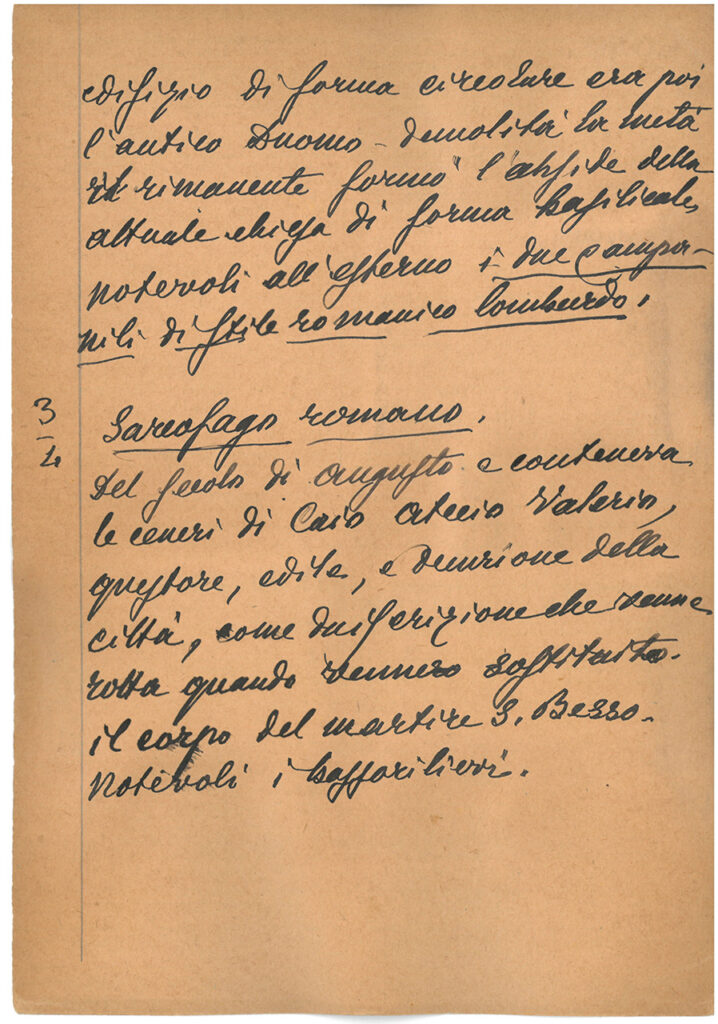 edifizio di forma circolare era poi
l'antico Duomo - demolita la metà
il rimanente formò l'abside della
attuale chiesa di forma basilicale,
notevoli all'esterno i due campa-
nili di stile romanico lombardo.
3
4
Sarcofago romano.
Del secolo di Augusto e conteneva
le ceneri di Caio Atecio Valerio,
questore, edile, e decurione della
città, come da iscrizione che venne
rotta quando vennero sostituito.
il corpo del martire S. Besso.
Notevoli i bassorilievi.